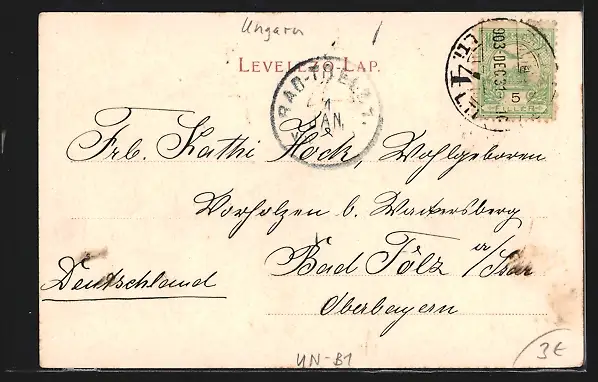 Ungarn
LEVELEZŐ-LAP.
903 DEC 31
5
BAD-TOELZ
1
JAN.
Frl. Kathi Hock, Wohlgeboren
Vorholzen b. Wackersberg
Bad Tölz a/Isar
Deutschland
Oberbayern
UN-B1
3€